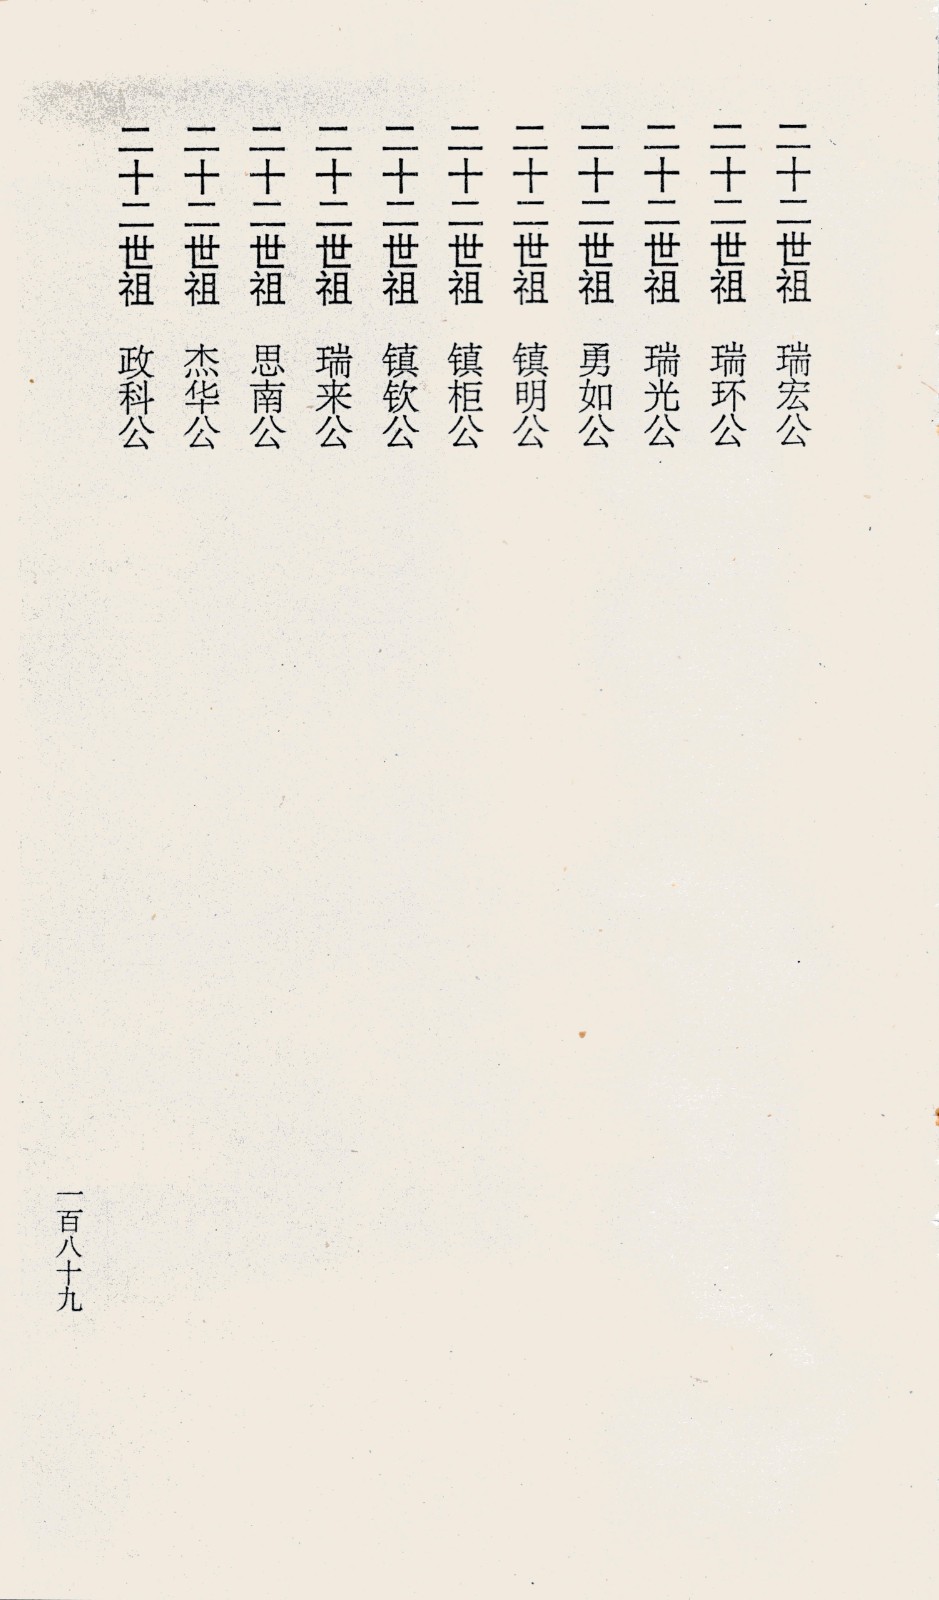 二十二世祖 瑞宏公
二十二世祖 瑞环公
二十二世祖 瑞光公
二十二世祖 勇如公
二十二世祖 镇明公
二十二世祖 镇柜公
二十二世祖 镇钦公
二十二世祖 瑞来公
二十二世祖 思南公
二十二世祖 杰华公
二十二世祖 政科公
一百八十九